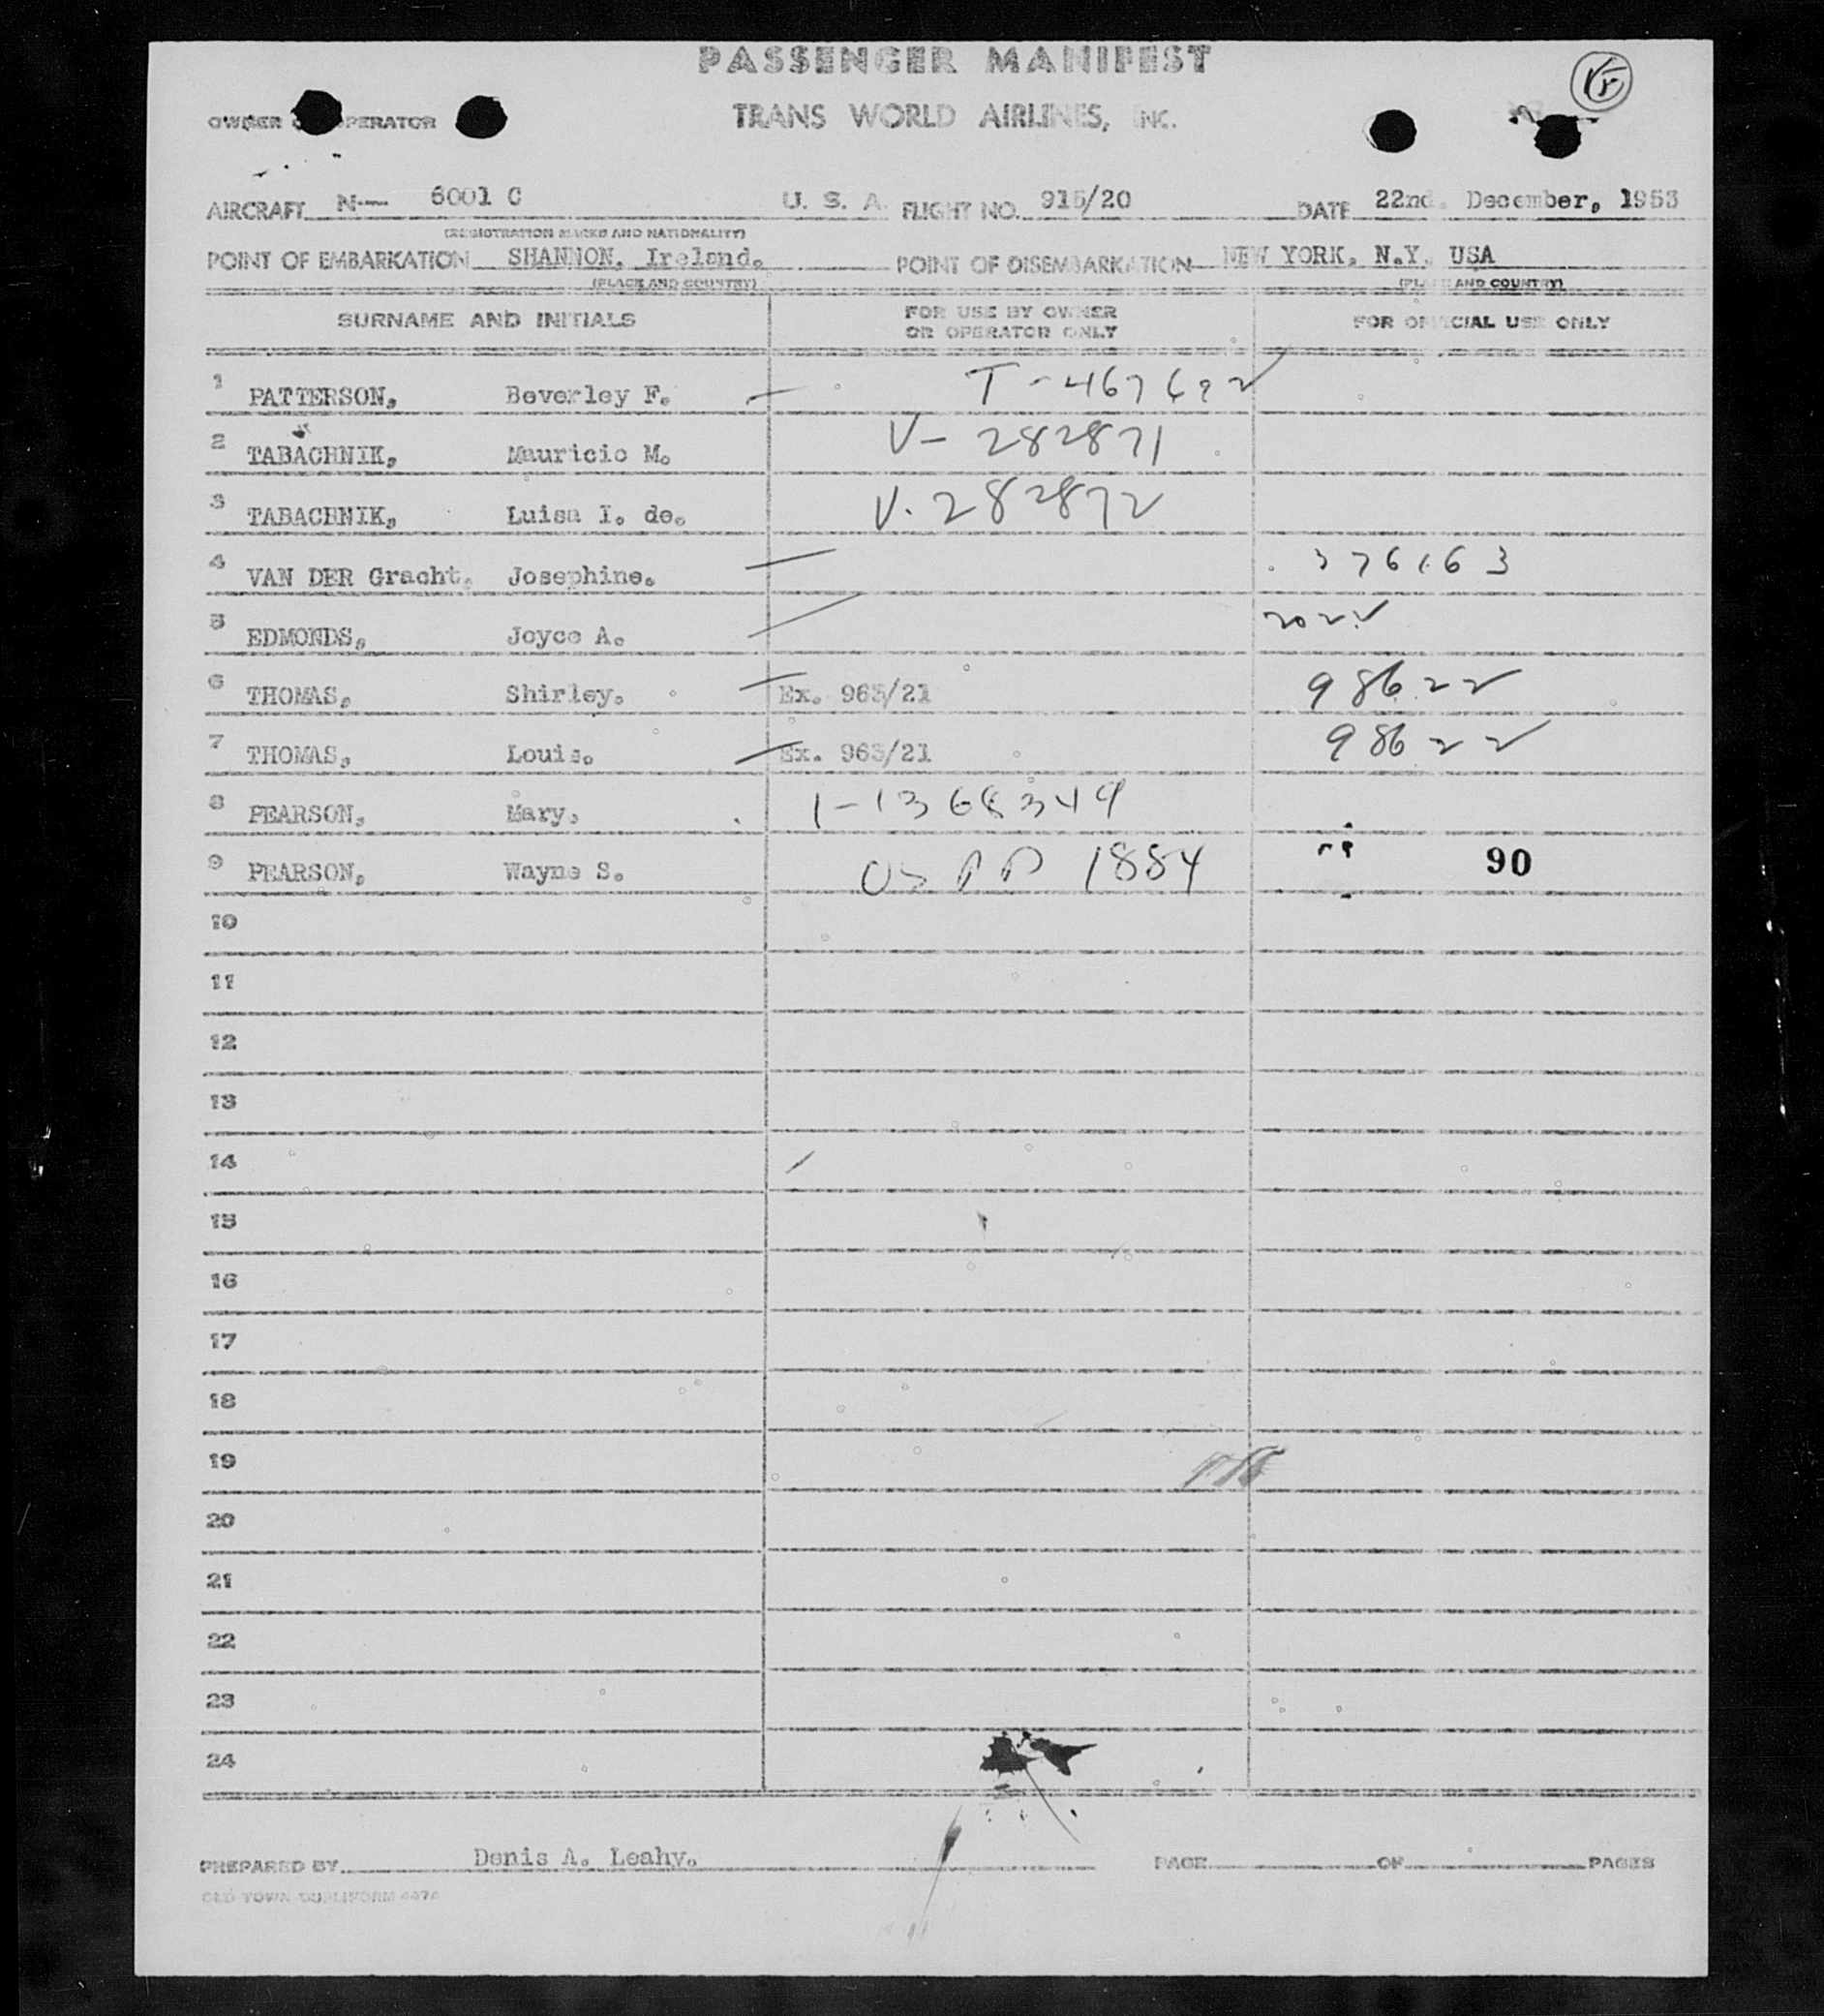 PASSENGER MANIFEST
OWNER OPERATOR TRANS WORLD AIRLINES, INC.
AIRCRAFT N-- 6001 C U. S. A. FLIGHT NO. 915/20 DATE 22nd. December, 1953
(REGISTRATION MARKS AND NATIONALITY)
POINT OF EMBARKATION SHANNON, Ireland. POINT OF DISEMBARKATION NEW YORK, N.Y. USA
(PLACE AND COUNTRY) (PLACE AND COUNTRY)
SURNAME AND INITIALS FOR USE BY OWNER OR OPERATOR ONLY FOR OFFICIAL USE ONLY
1 PATTERSON, Beverley F. T-467692
2 TABACHNIK, Mauricio M. V-282871
3 TABACHNIK, Luisa I. de. V.282872
4 VAN DER Gracht. Josephine. 376163
5 EDMONDS, Joyce A.
6 THOMAS, Shirley. Ex. 963/21 98622
7 THOMAS, Louis. Ex. 963/21 98622
8 PEARSON, Mary. 1-1368349
9 PEARSON, Wayne S. US PP 1884 90
10
11
12
13
14
15
16
17
18
19
20
21
22
23
24
PREPARED BY Denis A. Leahy. PAGE OF PAGES
OLD TOWN DUPLIFORM 4474